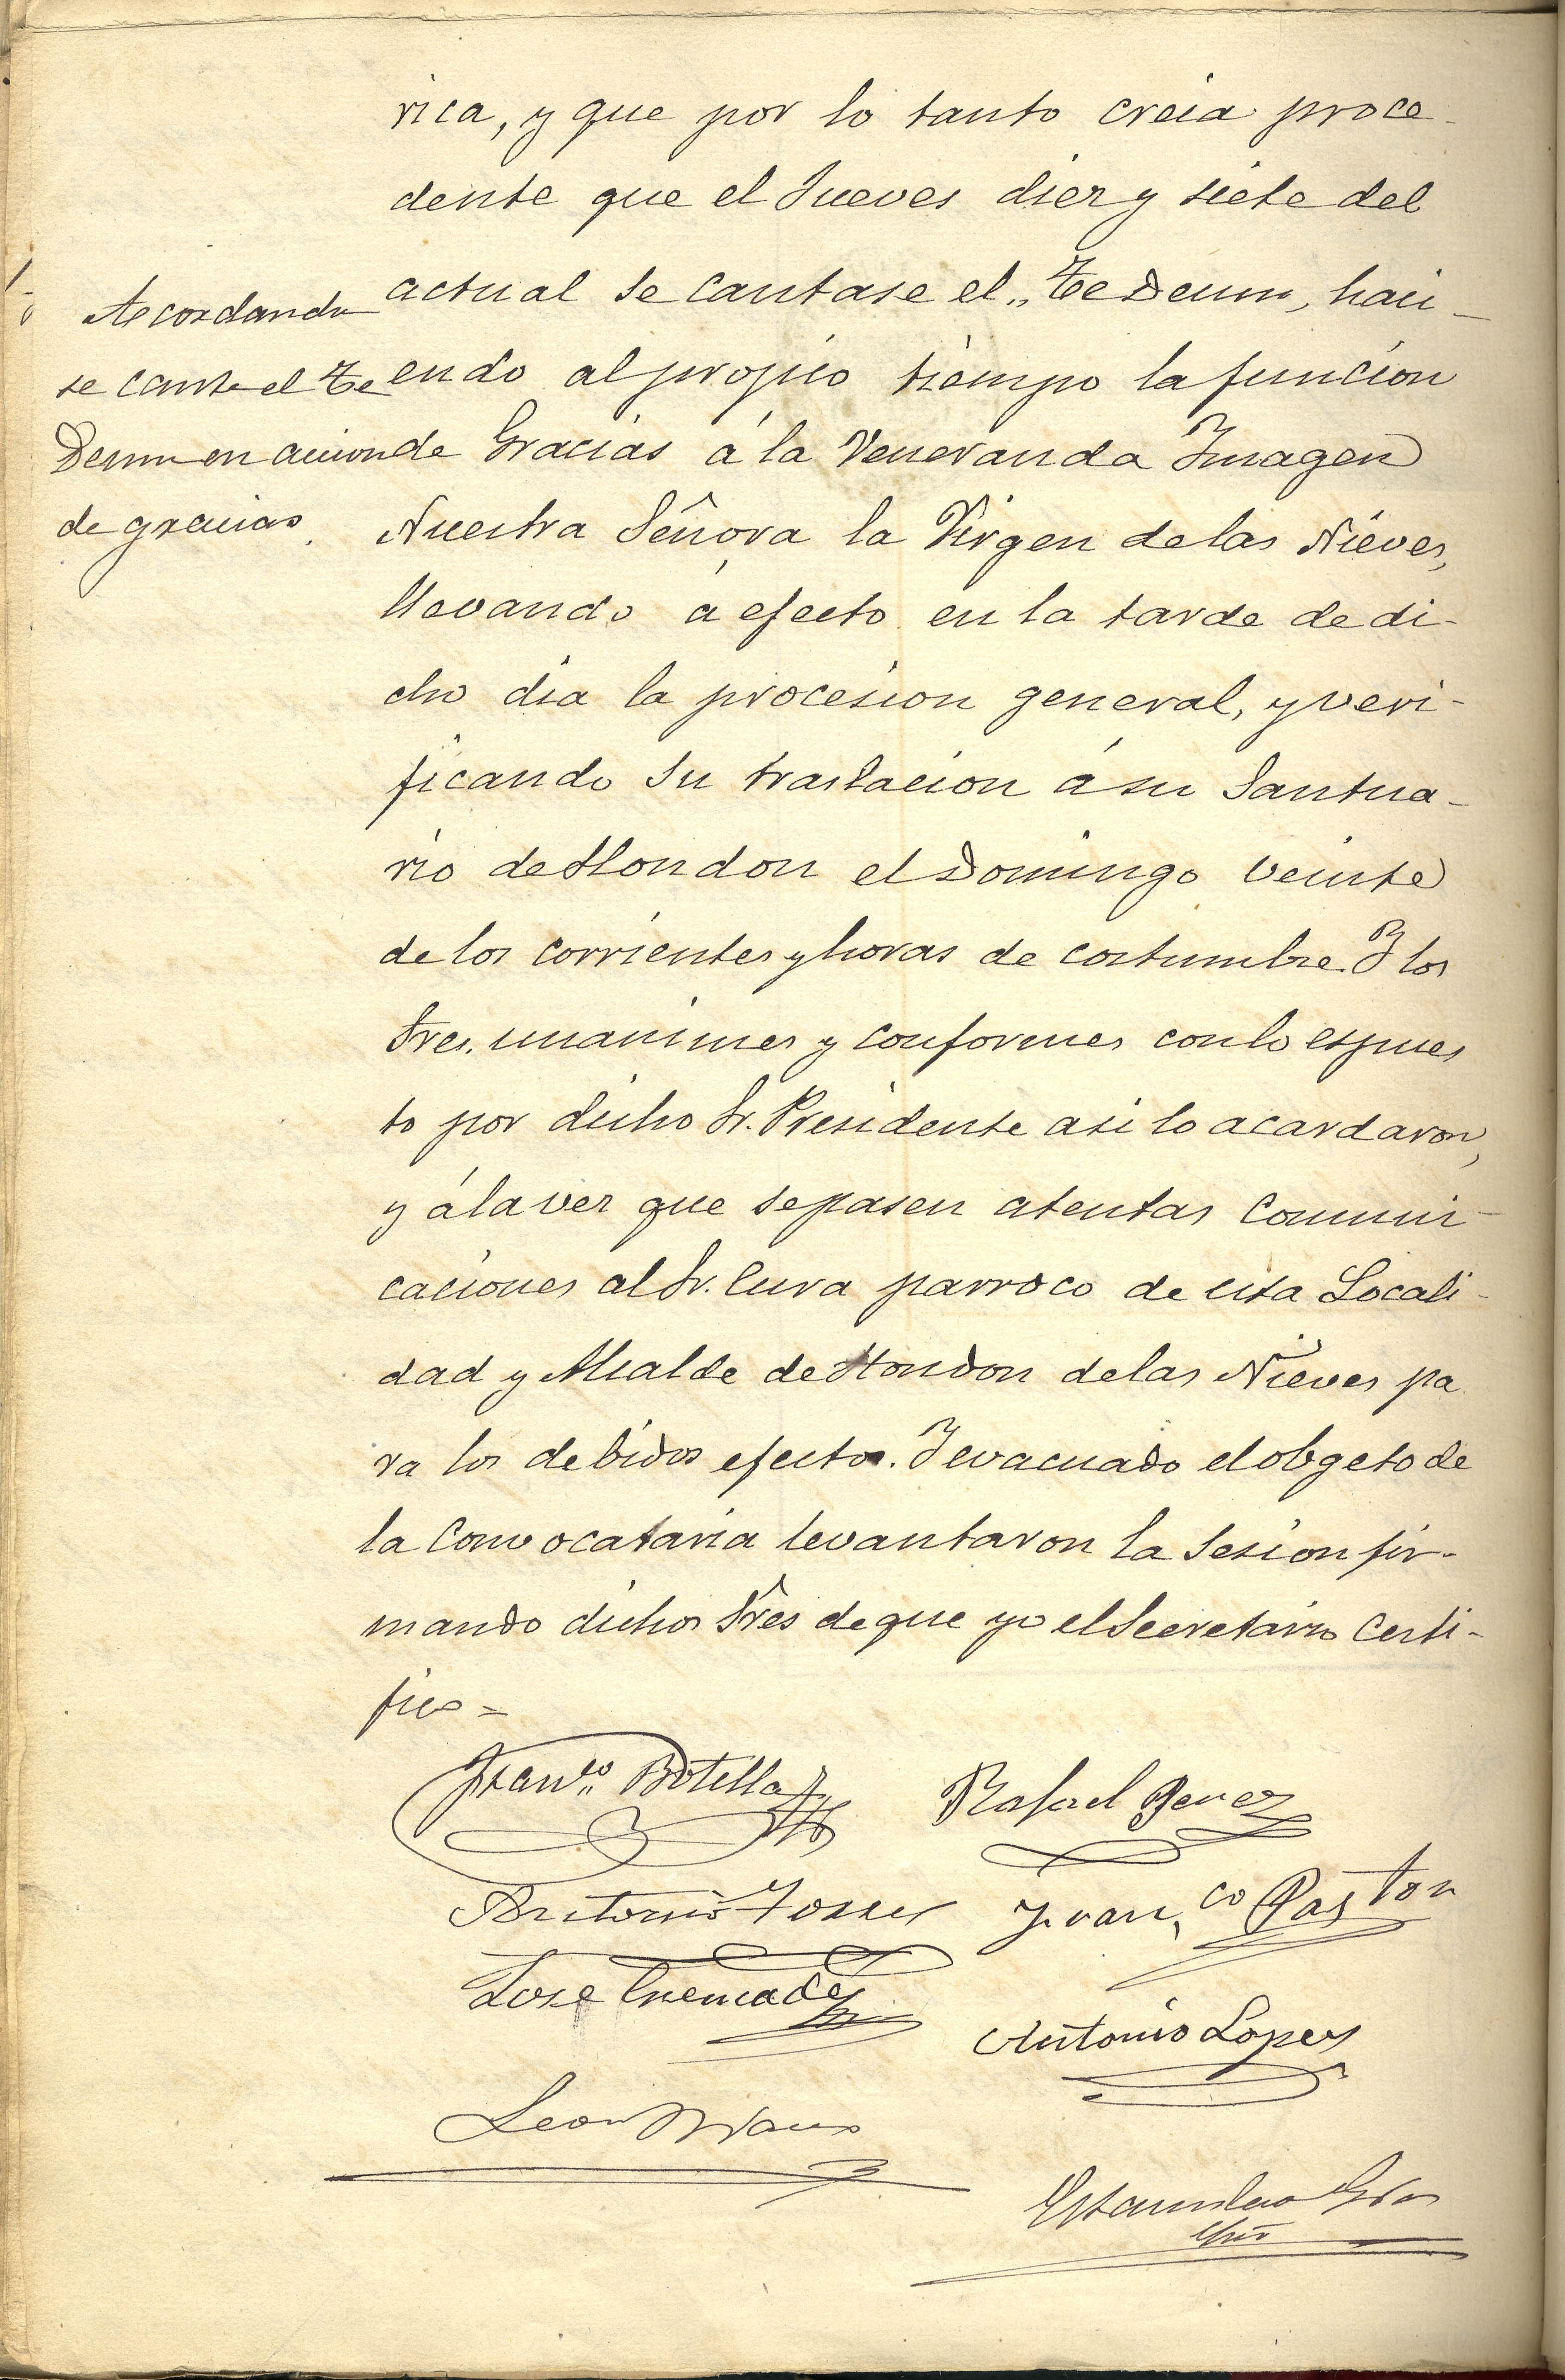 rica, y que por lo tanto creia proce-
dente que el Jueves diez y siete del
actual se cantase el „Te Deum, haci-
endo al propio tiempo la funcion
de Gracias á la Veneranda Imagen
Nuestra Señora la Virgen de las Nieves,
llevando á efecto en la tarde de di-
cho dia la procesion general, y veri-
ficando su traslacion á su Santua-
rio de Hondon el Domingo veinte
de los corrientes y horas de costumbre. Y los
Sres. unanimes y conformes con lo espues
to por dicho Sr. Presidente asi lo acordaron,
y á la vez que se pasen atentas comuni-
caciones al Sr. Cura parroco de esta Locali-
dad y Alcalde de Hondon de las Nieves pa
ra los debidos efectos. Y evacuado el obgeto de
la Convocatoria levantaron la Sesion fir-
mando dichos Sres de que yo el Secretario Certi-
fico =
Acordando
se cante el Te
Deum en accion
de gracias.
Franco. Botella
Rafael Perez
Antonio
Fran,co Pastor
Jose Cremades
Antonio Lopez
Leon
Estanislao